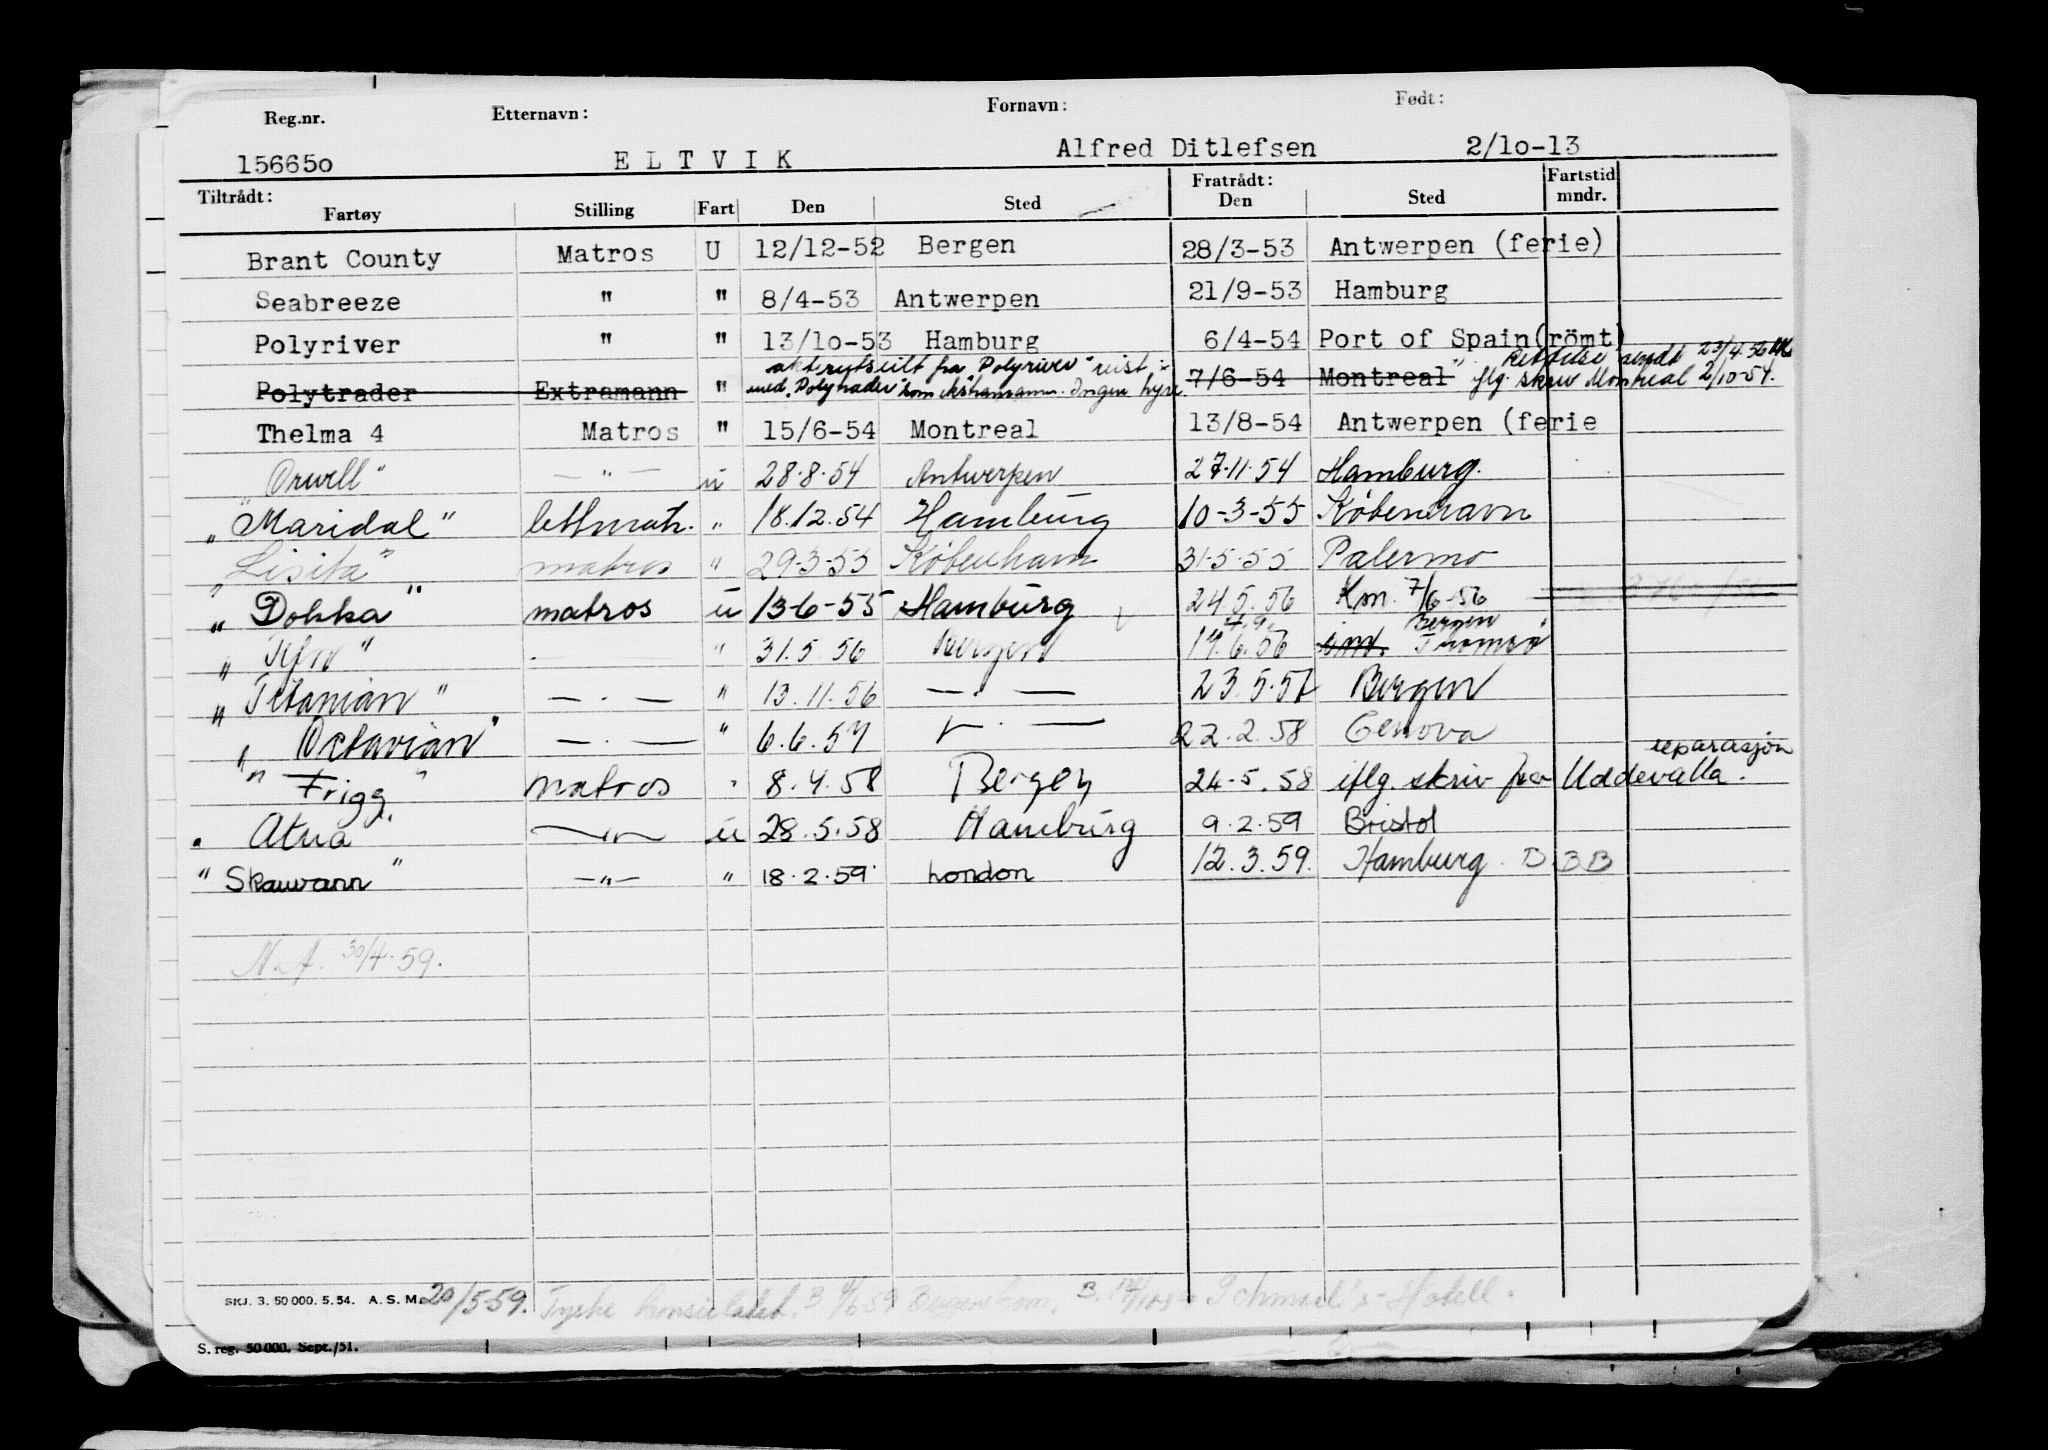 Reg.nr. Etternavn: Fornavn: Født:
156650 ELTVIK Alfred Ditlefsen 2/10-13
Tiltrådt: Fratrådt: Fartstid
Fartøy Stilling Fart Den Sted Den Sted mndr.
Brant County Matros U 12/12-52 Bergen 28/3-53 Antwerpen (ferie)
Seabreeze " " 8/4-53 Antwerpen 21/9-53 Hamburg
Polyriver " " 13/10-53 Hamburg 6/4-54 Port of Spain (römt)
fra "Polyriver" reist Rettelse sendt 23/4.56
Polytrader Extramann " med "Polytrader" som ekstramann. Ingen hyre. 7/6-54 Montreal " iflg. skriv Montreal 2/10-54.
Thelma 4 Matros " 15/6-54 Montreal 13/8-54 Antwerpen (ferie
"Orwell" — " — u 28.8.54 Antwerpen 27.11.54 Hamburg.
"Maridal" lettmatr. " 18.12.54 Hamburg 10-3-55 København
"Lisita" matros " 29-3-55 København 31-5-55 Palermo
"Dokka" matros u 13-6-55 Hamburg 24.5.56 Km. 7/6-56
Bergen
" " " 31.5.56 Bergen 17.6.56 Tromsø
"Titanian" — . — " 13.11.56 — . — 23.5.57 Bergen
"Octavian" — . — " 6.6.57 — . — 22.2.58 Genova
reparasjon
"Frigg" matros " 8.4.58 Bergen 24.5.58 iflg. skriv fra Uddevalla.
"Atna" — " — u 28.5.58 Hamburg 9.2.59 Bristol
"Skauvann" — " — " 18.2.59 London 12.3.59. Hamburg. B B B
N.A. 30/4.59.
SKJ. 3. 50 000. 5. 54. A. S. M. 20/5-59. Tyske konsulatet. B Bergenskom. B. Schmidt's Hotell.
S. reg. 50 000. Sept./51.